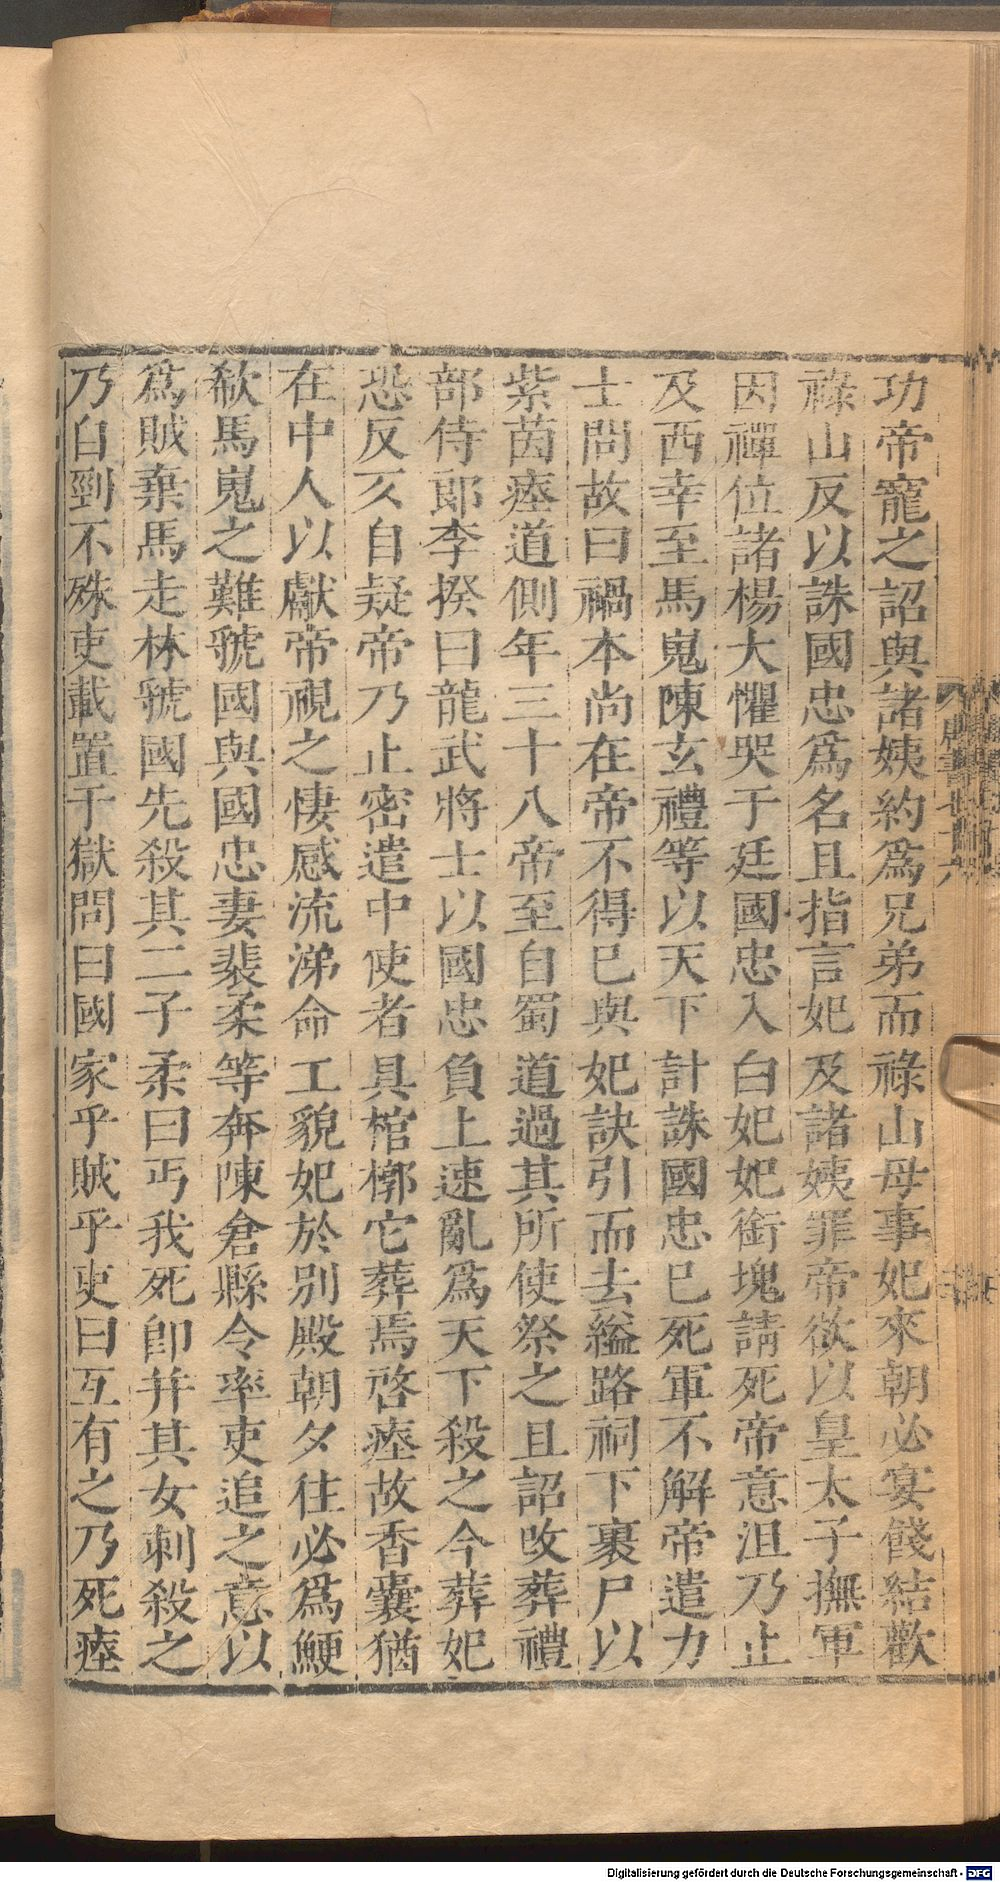 功帝寵之詔與諸姨約爲兄弟而祿山母事妃來朝必宴餞結歡
祿山反以誅國忠爲名且指言妃及諸姨罪帝欲以皇太子撫軍
因禪位諸楊大懼哭于廷國忠入白妃妃銜塊請死帝意沮乃止
及西幸至馬嵬陳玄禮等以天下計誅國忠已死軍不解帝遣力
士問故曰禍本尚在帝不得已與妃訣引而去縊路祠下裹尸以
紫茵瘞道側年三十八帝至自蜀道過其所使祭之且詔改葬禮
部侍郎李揆曰龍武將士以國忠負上速亂爲天下殺之今葬妃
恐反仄自疑帝乃止密遣中使者具棺槨它葬焉啓瘞故香囊猶
在中人以獻帝視之悽感流涕命工貌妃於別殿朝夕往必爲鯁
欷馬嵬之難虢國與國忠妻裴柔等奔陳倉縣令率吏追之意以
爲賊棄馬走林虢國先殺其二子柔曰丐我死卽幷其女刺殺之
乃自剄不殊吏載置于獄問曰國家乎賊乎吏曰互有之乃死瘞
Digitalisierung gefördert durch die Deutsche Forschungsgemeinschaft - DFG